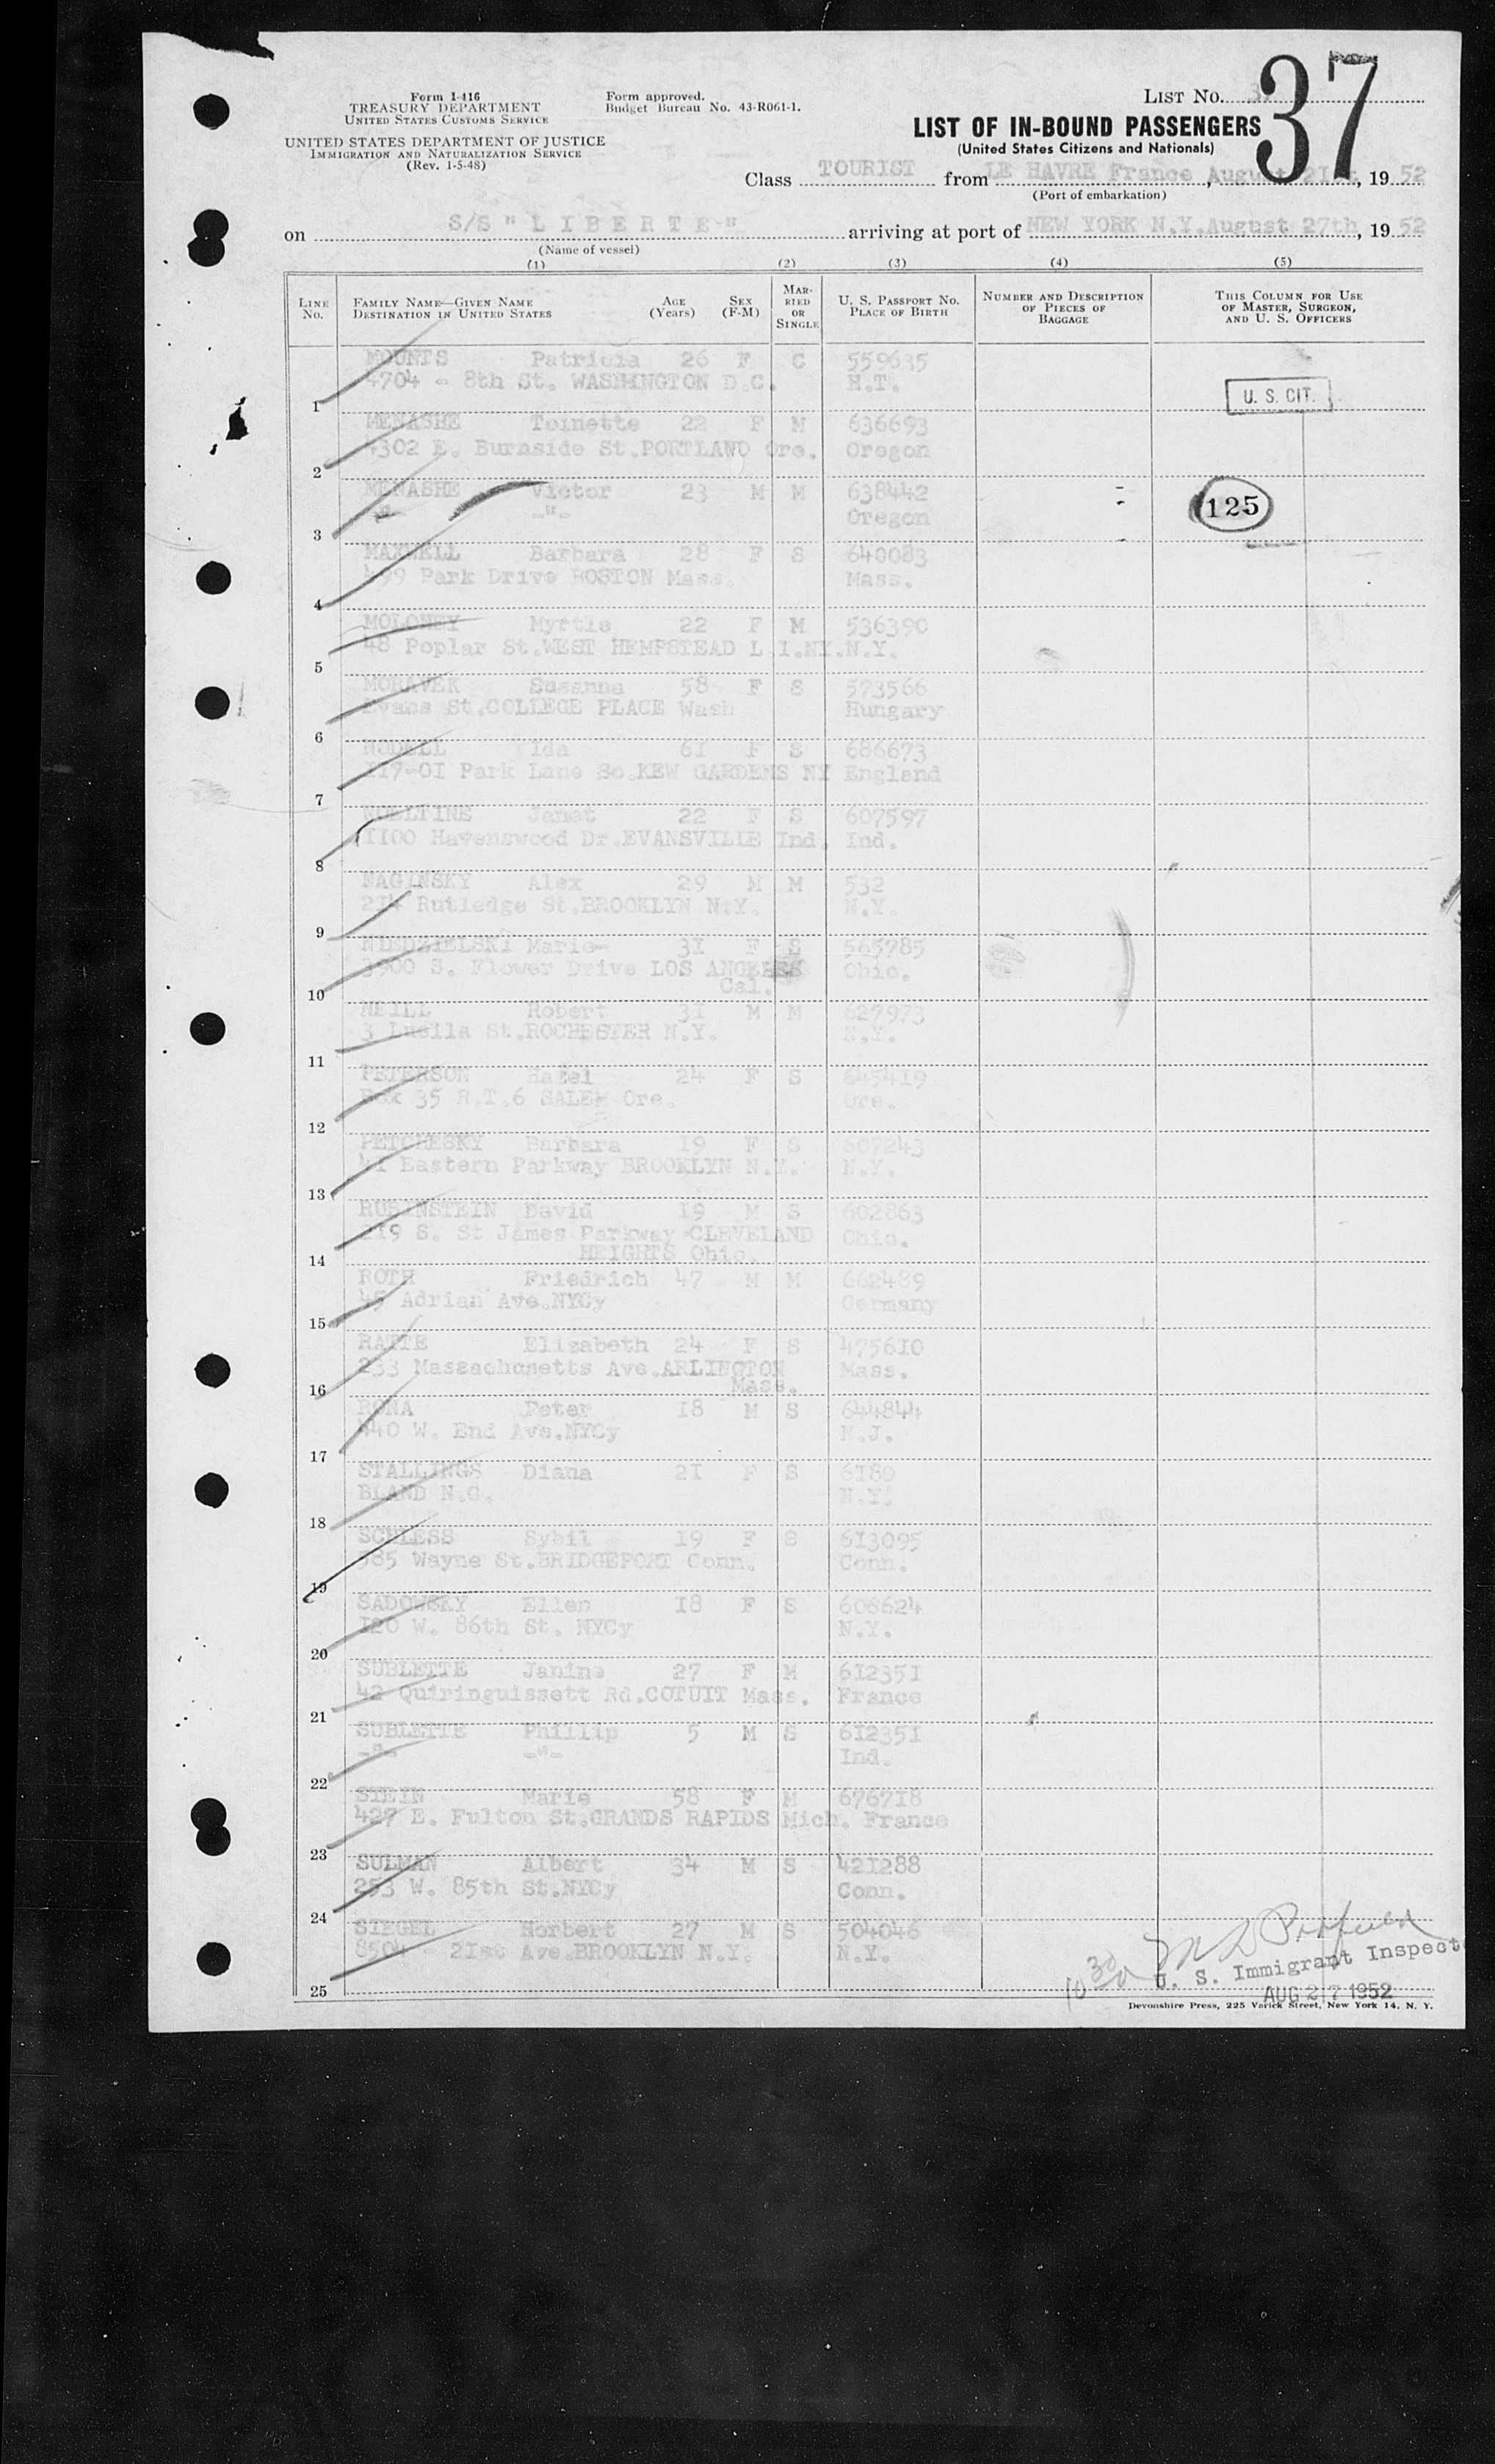 Form I-416
TREASURY DEPARTMENT
UNITED STATES CUSTOMS SERVICE
UNITED STATES DEPARTMENT OF JUSTICE
IMMIGRATION AND NATURALIZATION SERVICE
(Rev. 1-5-48)
Form approved.
Budget Bureau No. 43-R061-1.
LIST NO. 37
LIST OF IN-BOUND PASSENGERS
(United States Citizens and Nationals)
Class TOURIST from LE HAVRE France, August 21st, 1952
(Port of embarkation)
on S/S "LIBERTE" arriving at port of NEW YORK N.Y. August 27th, 1952
(Name of vessel)
(1) (2) (3) (4) (5)
LINE NO. FAMILY NAME—GIVEN NAME DESTINATION IN UNITED STATES AGE (Years) SEX (F-M) MARRIED OR SINGLE U. S. PASSPORT NO. PLACE OF BIRTH NUMBER AND DESCRIPTION OF PIECES OF BAGGAGE THIS COLUMN FOR USE OF MASTER, SURGEON, AND U. S. OFFICERS
MOUNTS Patricia 26 F C 559635
1 4704 - 8th St. WASHINGTON D.C. H.T.
U. S. CIT.
MENASHE Toinette 22 F M 636693
2 4302 E. Burnside St.PORTLAND Ore. Oregon
MENASHE Victor 23 M M 638442
3 -"- -"- Oregon
125
MAXWELL Barbara 28 F S 640083
4 499 Park Drive BOSTON Mass. Mass.
MOLONEY Myrtle 22 F M 536390
5 48 Poplar St.WEST HEMPSTEAD L.I.NY.N.Y.
MORAVEK Susanna 58 F S 573566
6 Evans St.COLLEGE PLACE Wash Hungary
NODELL Ida 61 F S 686673
7 117-01 Park Lane So.KEW GARDENS NY England
Janet 22 F S 607597
8 1100 Havenswood Dr.EVANSVILLE Ind. Ind.
NAGINSKY Alex 29 M M 532
9 214 Rutledge St.BROOKLYN N.Y. N.Y.
NIEDZIELSKI Marie 31 F S 565785
10 3900 S. Flower Drive LOS ANGELES Ohio.
Cal.
NEILL Robert 31 M M 627973
11 3 Luella St.ROCHESTER N.Y. N.Y.
PETERSON Hazel 24 F S 645419
12 Box 35 R.T.6 SALEM Ore. Ore.
PETCHESKY Barbara 19 F S 607243
13 41 Eastern Parkway BROOKLYN N.Y. N.Y.
RUBINSTEIN David 19 M S 602863
14 S. St James Parkway CLEVELAND Ohio.
HEIGHTS Ohio.
ROTH Friedrich 47 M M 662489
15 45 Adrian Ave.NYCy Germany
RATTE Elizabeth 24 F S 475610
16 233 Massachusetts Ave.ARLINGTON Mass.
Mass.
RONA Peter 18 M S 644844
17 440 W. End Ave.NYCy N.J.
STALLINGS Diana 21 F S 6180
18 BLAND N.C. N.Y.
SCHLESS Sybil 19 F S 613095
19 385 Wayne St.BRIDGEPORT Conn. Conn.
SADOWSKY Ellen 18 F S 606624
20 120 W. 86th St. NYCy N.Y.
SUBLETTE Janine 27 F M 612351
21 42 Quiringuissett Rd.COTUIT Mass. France
SUBLETTE Phillip 5 M S 612351
22 -"- -"- Ind.
STEIN Marie 58 F M 676718
23 427 E. Fulton St.GRANDS RAPIDS Mich. France
SULMAN Albert 34 M S 421288
24 253 W. 85th St.NYCy Conn.
SIEGEL Norbert 27 M S 504046
25 8504 - 21st Ave.BROOKLYN N.Y. N.Y.
U. S. Immigrant Inspector
AUG 27 1952
Devonshire Press, 225 Varick Street, New York 14, N. Y.